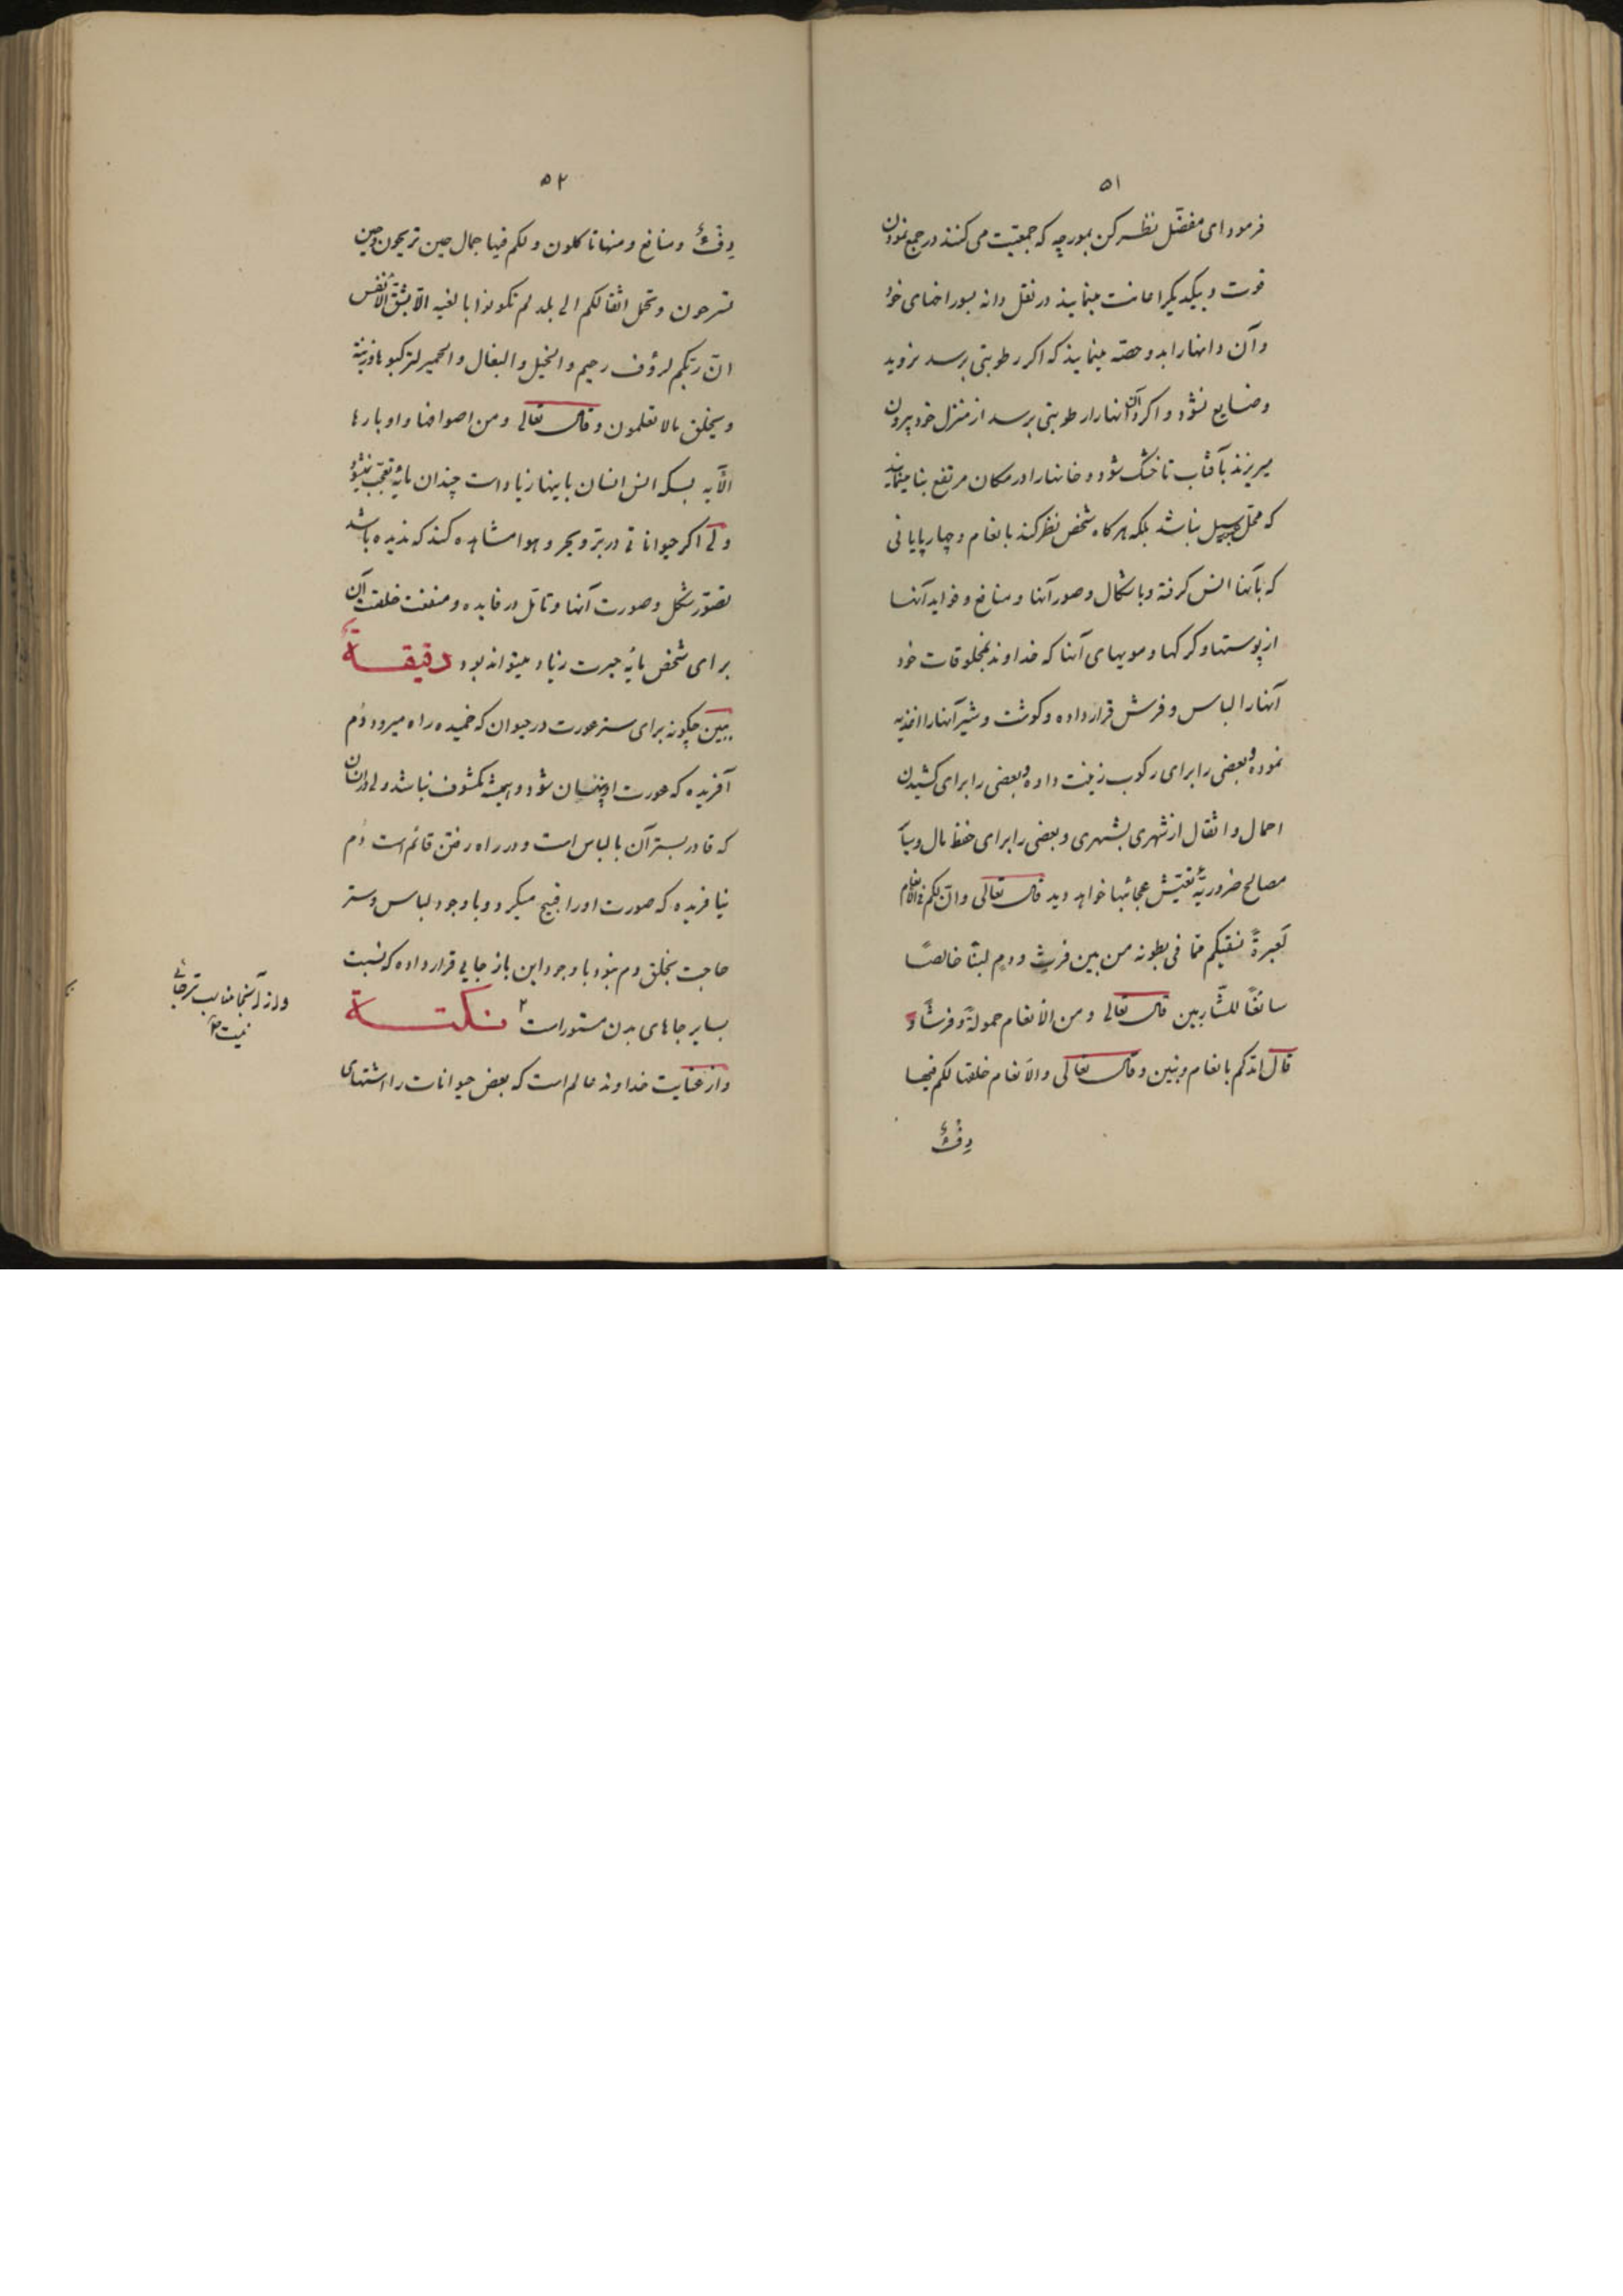 ۵۱
فرمود ای مفضّل نظر کن بمورچه که جمعیّت می کنند در جمع نمودن
قوت و بیکدیکر اعانت مینمایند در نقل دانه بسوراخهای خود
و آن دانها را بدو حصّه مینمایند که اکر رطوبتی برسد نروید
و ضایع نشود و اکر دانهٔ آنها را رطوبتی برسد از منزل خود بیرون
میریزند بآفتاب تا خشک شود و خانها را در مکان مرتفع بنا مینمایند
که محلّ سیل نباشد بلکه هرکاه شخص نظر کند بانعام و چهارپایانی
که بآنها انس کرفته و باشکال و صور آنها و منافع و فواید آنها
از پوستها و کرکها و مویهای آنها که خداوند بمخلوقات خود
آنها را لباس و فرش قرار داده و کوشت و شیر آنها را اغذیه
نموده و بعضی را برای رکوب زینت داده و بعضی را برای کشیدن
احمال و اثقال از شهری بشهری و بعضی را برای حفظ مال و سایر
مصالح ضروریّهٔ تعیّش عجائبها خواهد دید قال تعالی و انّ لکم فی الانعام
لَعبرةً نسقیکم ممّا فی بطونه من بین فرث و دم لبنًا خالصًا
سائغًا للشّاربین قال تعالی و من الأنعام حمولةً و فرشًا و
قال امدّکم بانعام و بنین و قال تعالی و الأنعام خلقها لکم فیها
دِفْءٌ
۵۲
دِفْءٌ و منافع و منها تاکلون و لکم فیها جمال حین تریحون و حین
تسرحون و تحمل اثقالکم الی بلد لم تکونوا بالغیه الّا بشقّ الأنفس
انّ ربّکم لرؤف رحیم و الخیل و البغال و الحمیر لترکبوها و زینة
و یخلق مالا تعلمون و قال تعالی و من اصوافها و اوبارها
الآیه بسکه انس انسان باینها زیاد است چندان مایهٔ تعجّب نیشود
ولی اکر حیواناتی در برّ و بحر و هوا مشاهده کند که ندیده باشد
تصوّر شکل و صورت آنها و تامّل در فایده و منفعت خلقت آن
برای شخص مایهٔ حیرت زیاد میتواند بود دقیقة
ببین چکونه برای ستر عورت در حیوان که خمیده راه میرود دُم
آفریده که عورت او پنهان شود و همیشه مکشوف نباشد ولی در انسان
که قادر بستر آن بالباس است و در راه رفتن قائم است دُم
نیافریده که صورت او را قبیح میکرد و با وجود لباس و ستر
حاجت بخلق دم نبود با وجود این باز جایی قرار داده که نسبت
بسایر جاهای بدن مستور است ۲ نکتة
و از عنایت خداوند عالم است که بعض حیوانات را اشتهای